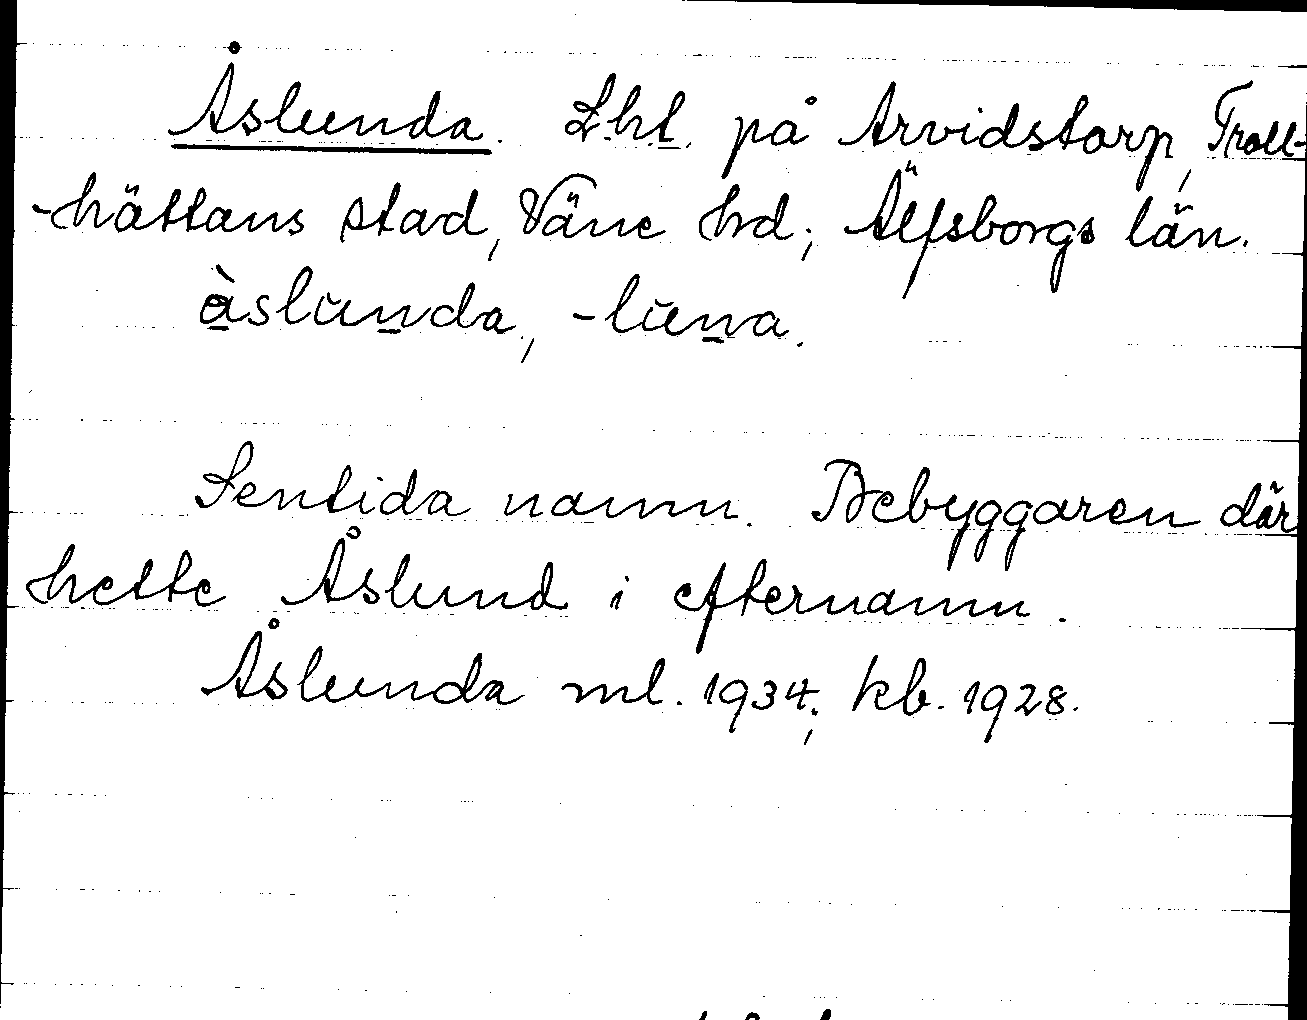 Åslunda. Lht. på Arvidstorp, Troll-
-hättans stad, Väne hd; Älfsborgs län.
àslŭnda, -lŭna.
Sentida namn. Bebyggaren där
hette Åslund i efternamn.
Åslunda ml. 1934; kb. 1928.